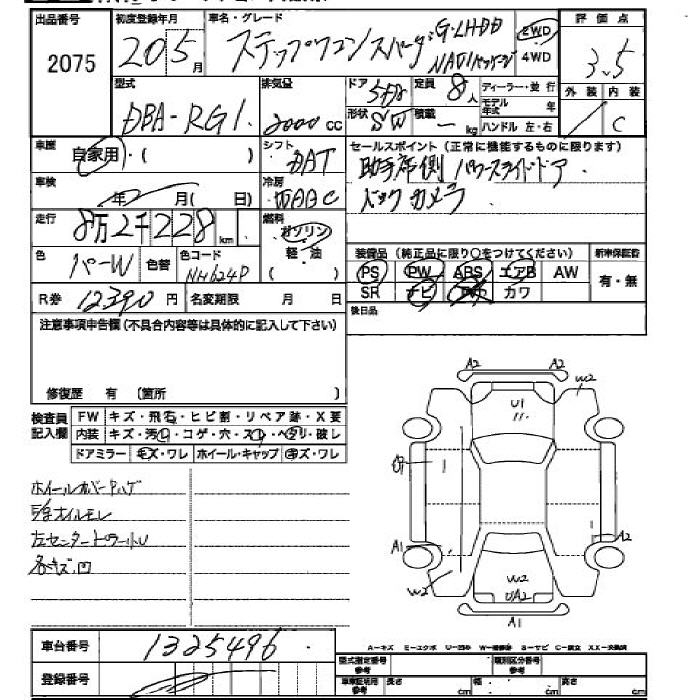 出品番号 初度登録年月 車名・グレード 評価点
2075 20 5月 ステップワゴンスパーダ G・LHDD NAVIパッケージ 2WD 4WD 3.5
型式 排気量 ドア 定員 8人 ディーラー・並行 外装 内装
DBA-RG1. 2000cc 形状 SW 積載 － kg モデル年式 年 ハンドル 左・右 C
車歴 自家用・( ) シフト DAT セールスポイント(正常に機能するものに限ります)
助手席側 パワースライドドア
車検 年 月( 日) 冷房
バックカメラ
走行 8万2千228km 燃料 ガソリン 軽・油 ( )
色 パーW 色替 色コード NH624P 装備品(純正品に限り○をつけてください) 新車保証書
PS PW ABS エアB AW 有・無
R券 12390円 名変期限 月 日 SR ナビ カワ
注意事項申告欄(不具合内容等は具体的に記入して下さい) 後日品
修復歴 有 〔箇所 〕
検査員記入欄 FW キズ・飛石・ヒビ割・リペア跡・X要
内装 キズ・汚レ・コゲ・穴・スレ・ヘタリ・破レ
ドアミラー キズ・ワレ ホイール・キャップ キズ・ワレ
A2 A2
W2
U1
A2
A1
W2
W2
UA2
A1
ホイールカバーハゲ
オイルモレ
左センターピラー小U
各キズ.凹
車台番号 1325496
登録番号
A－キズ E－エクボ U－凹み W－補修跡 S－サビ C－腐食 XX－交換済
型式指定番号 参考 類別区分番号 参考
車車証明用 参考 長さ cm 幅 cm 高さ cm